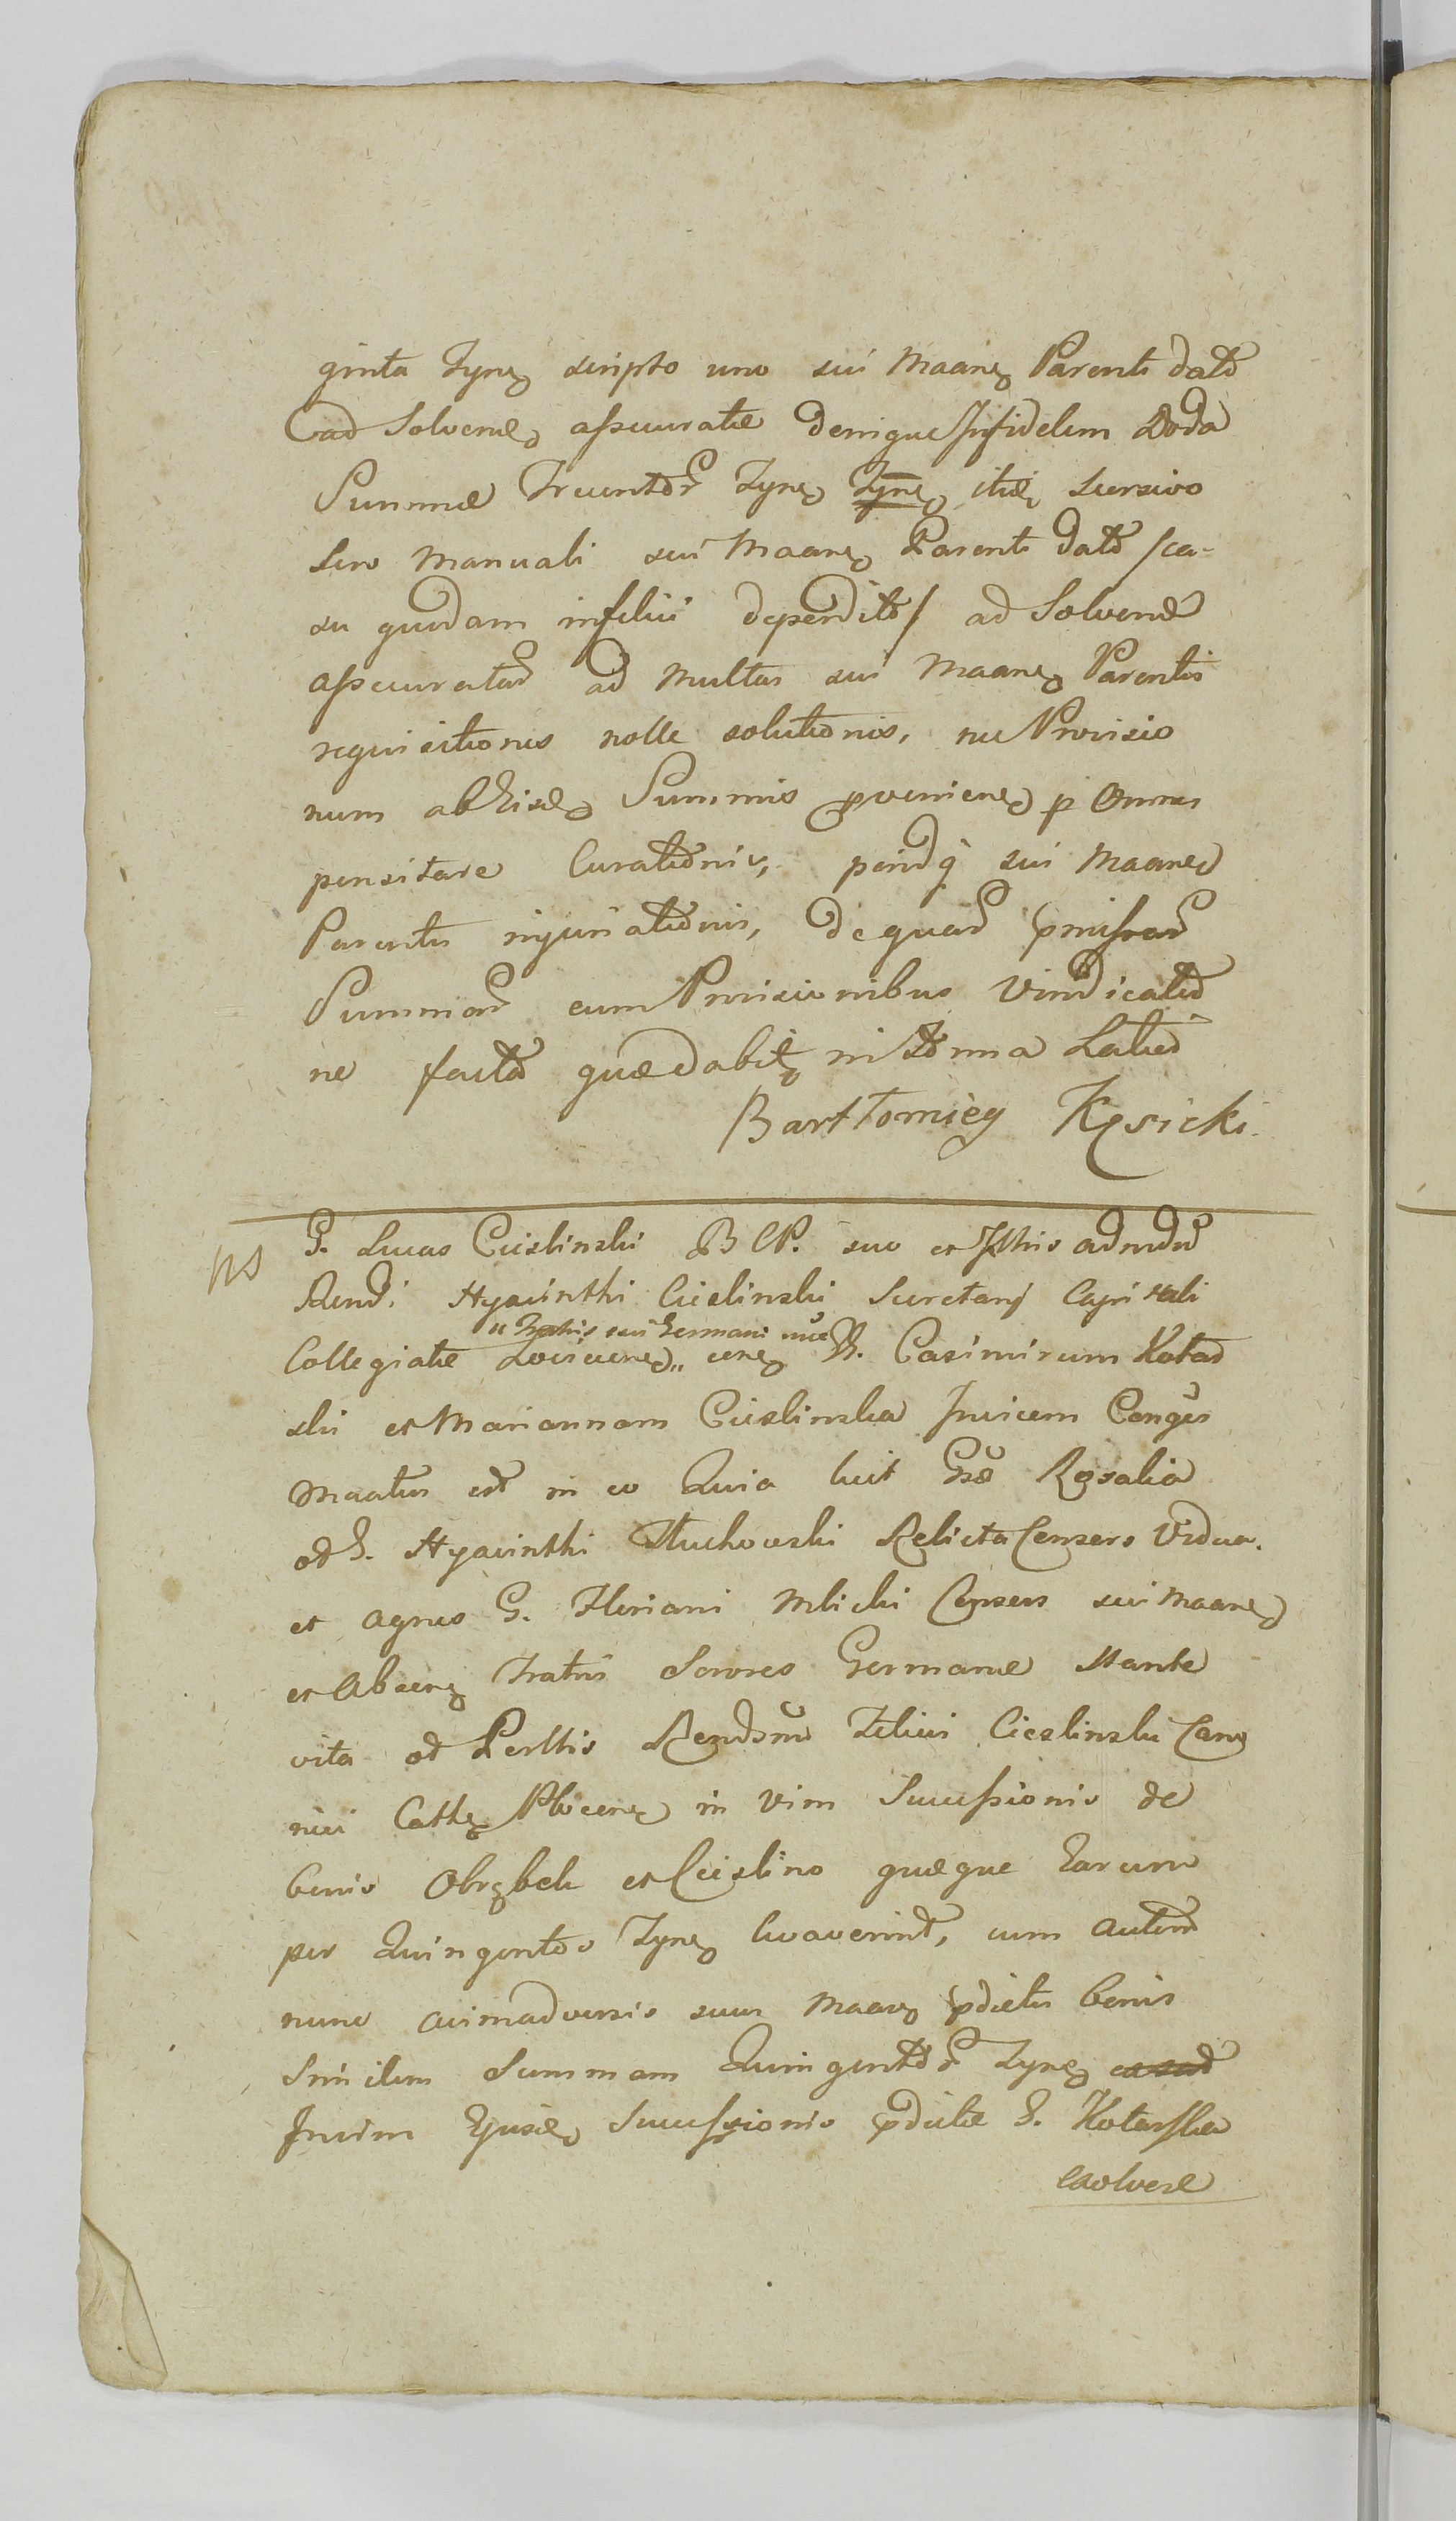 ginta Tyne scripto uno sui Maane Parenti dato
ad Solvene assecuratae denique Infidelem Doda
Summae Trecentor Tyne Tyne itide scersivo
seu Manuali sui Maane Parenti dato /ca-
su quodam infelici deperdito/ ad Solvend
assecuratar ad Multas sui Maane Parentis
requisitiones nolle solutionis, nec Provisio
num ab Eisde Summis proveniene p Omnes
pensitare Curationis, pendq sui Maane
Parentis injuriationis, de quar pmissar
Summar cum Provisionibus Vindicatio
ne facto quae dabit in Termino Latio
Barttomiey Kęsicki.
ns G. Lucas Cieslinski BCP. suo et Ilhis admdu
Rendi Hyacinthi Cieslinski Secretarij Capituli
"Fratris sui Germani nie
Collegiatae Loviciene,, cene G. Casimirum Kotar
ski et Mariannam Cieslinska Invicem Conges
Maatus est in eo Quia licet Gsae Rosalia
od G. Hyacinthi Tluchowski Relicta Consors Vidua.
et Agnes G. Floriani Mlicki Consors sui Maane
et Absene Fratris Sorores Germanae Stante
vita od Perllis Rendsmi Felicis Cieslinski Cano
nici Cathe Plocene in Vim Successionis de
bonis Obrębek et Cieslino quaeque Earum
per Quingentos Tyne levaverint, cum autem
nunc animadversis suus Maane pdictis bonis
Similem Summam Quingentor Tyne
In vim Ejusde Successionis pdictae G. Kotarska
exolvere